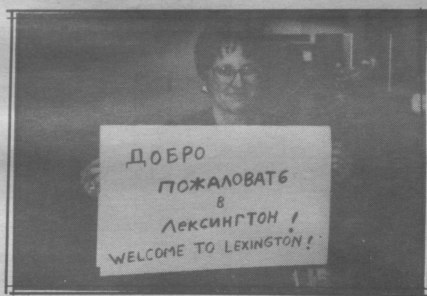 ДОБРО
ПОЖАЛОВАТЬ
В
ЛЕКСИНГТОН!
WELCOME TO LEXINGTON!